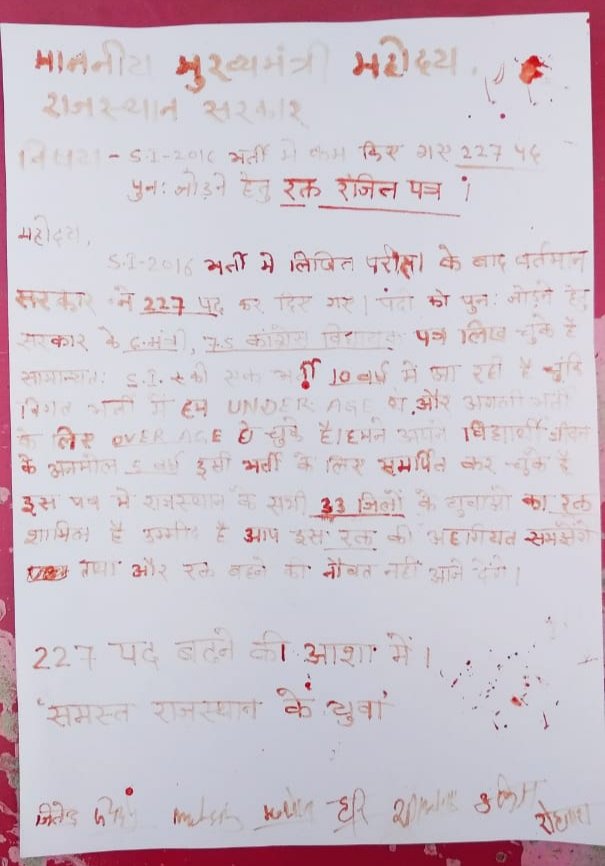 माननीय मुख्यमंत्री महोदय,
राजस्थान सरकार
विषय - S.I-2016 भर्ती में कम किए गए 227 पद
पुनः जोड़ने हेतु रक्त रंजित पत्र ।
महोदय,
S.I-2016 भर्ती में लिखित परीक्षा के बाद वर्तमान
सरकार ने 227 पद कर दिए गए । पदों को पुनः जोड़ने हेतु
सरकार के 6 मंत्री, 75 कांग्रेस विधायक पत्र लिख चुके हैं
सामान्यतः S.I. की एक भर्ती 10 वर्ष में आ रही है चूंकि
विगत भर्ती में हम UNDER AGE थे, और अगली भर्ती
के लिए OVER AGE हो चुके है। हमने अपने विद्यार्थी जीवन
के अनमोल 5 वर्ष इसी भर्ती के लिए समर्पित कर चुके है
इस पत्र में राजस्थान के सभी 33 जिलों के युवाओं का रक्त
शामिल है उम्मीद है आप इस रक्त की अहमियत समझेंगे
तथा और रक्त बहने का नौबत नहीं आने देंगे ।
227 पद बढ़ने की आशा में ।
समस्त राजस्थान के युवा
जितेन्द्र हरि